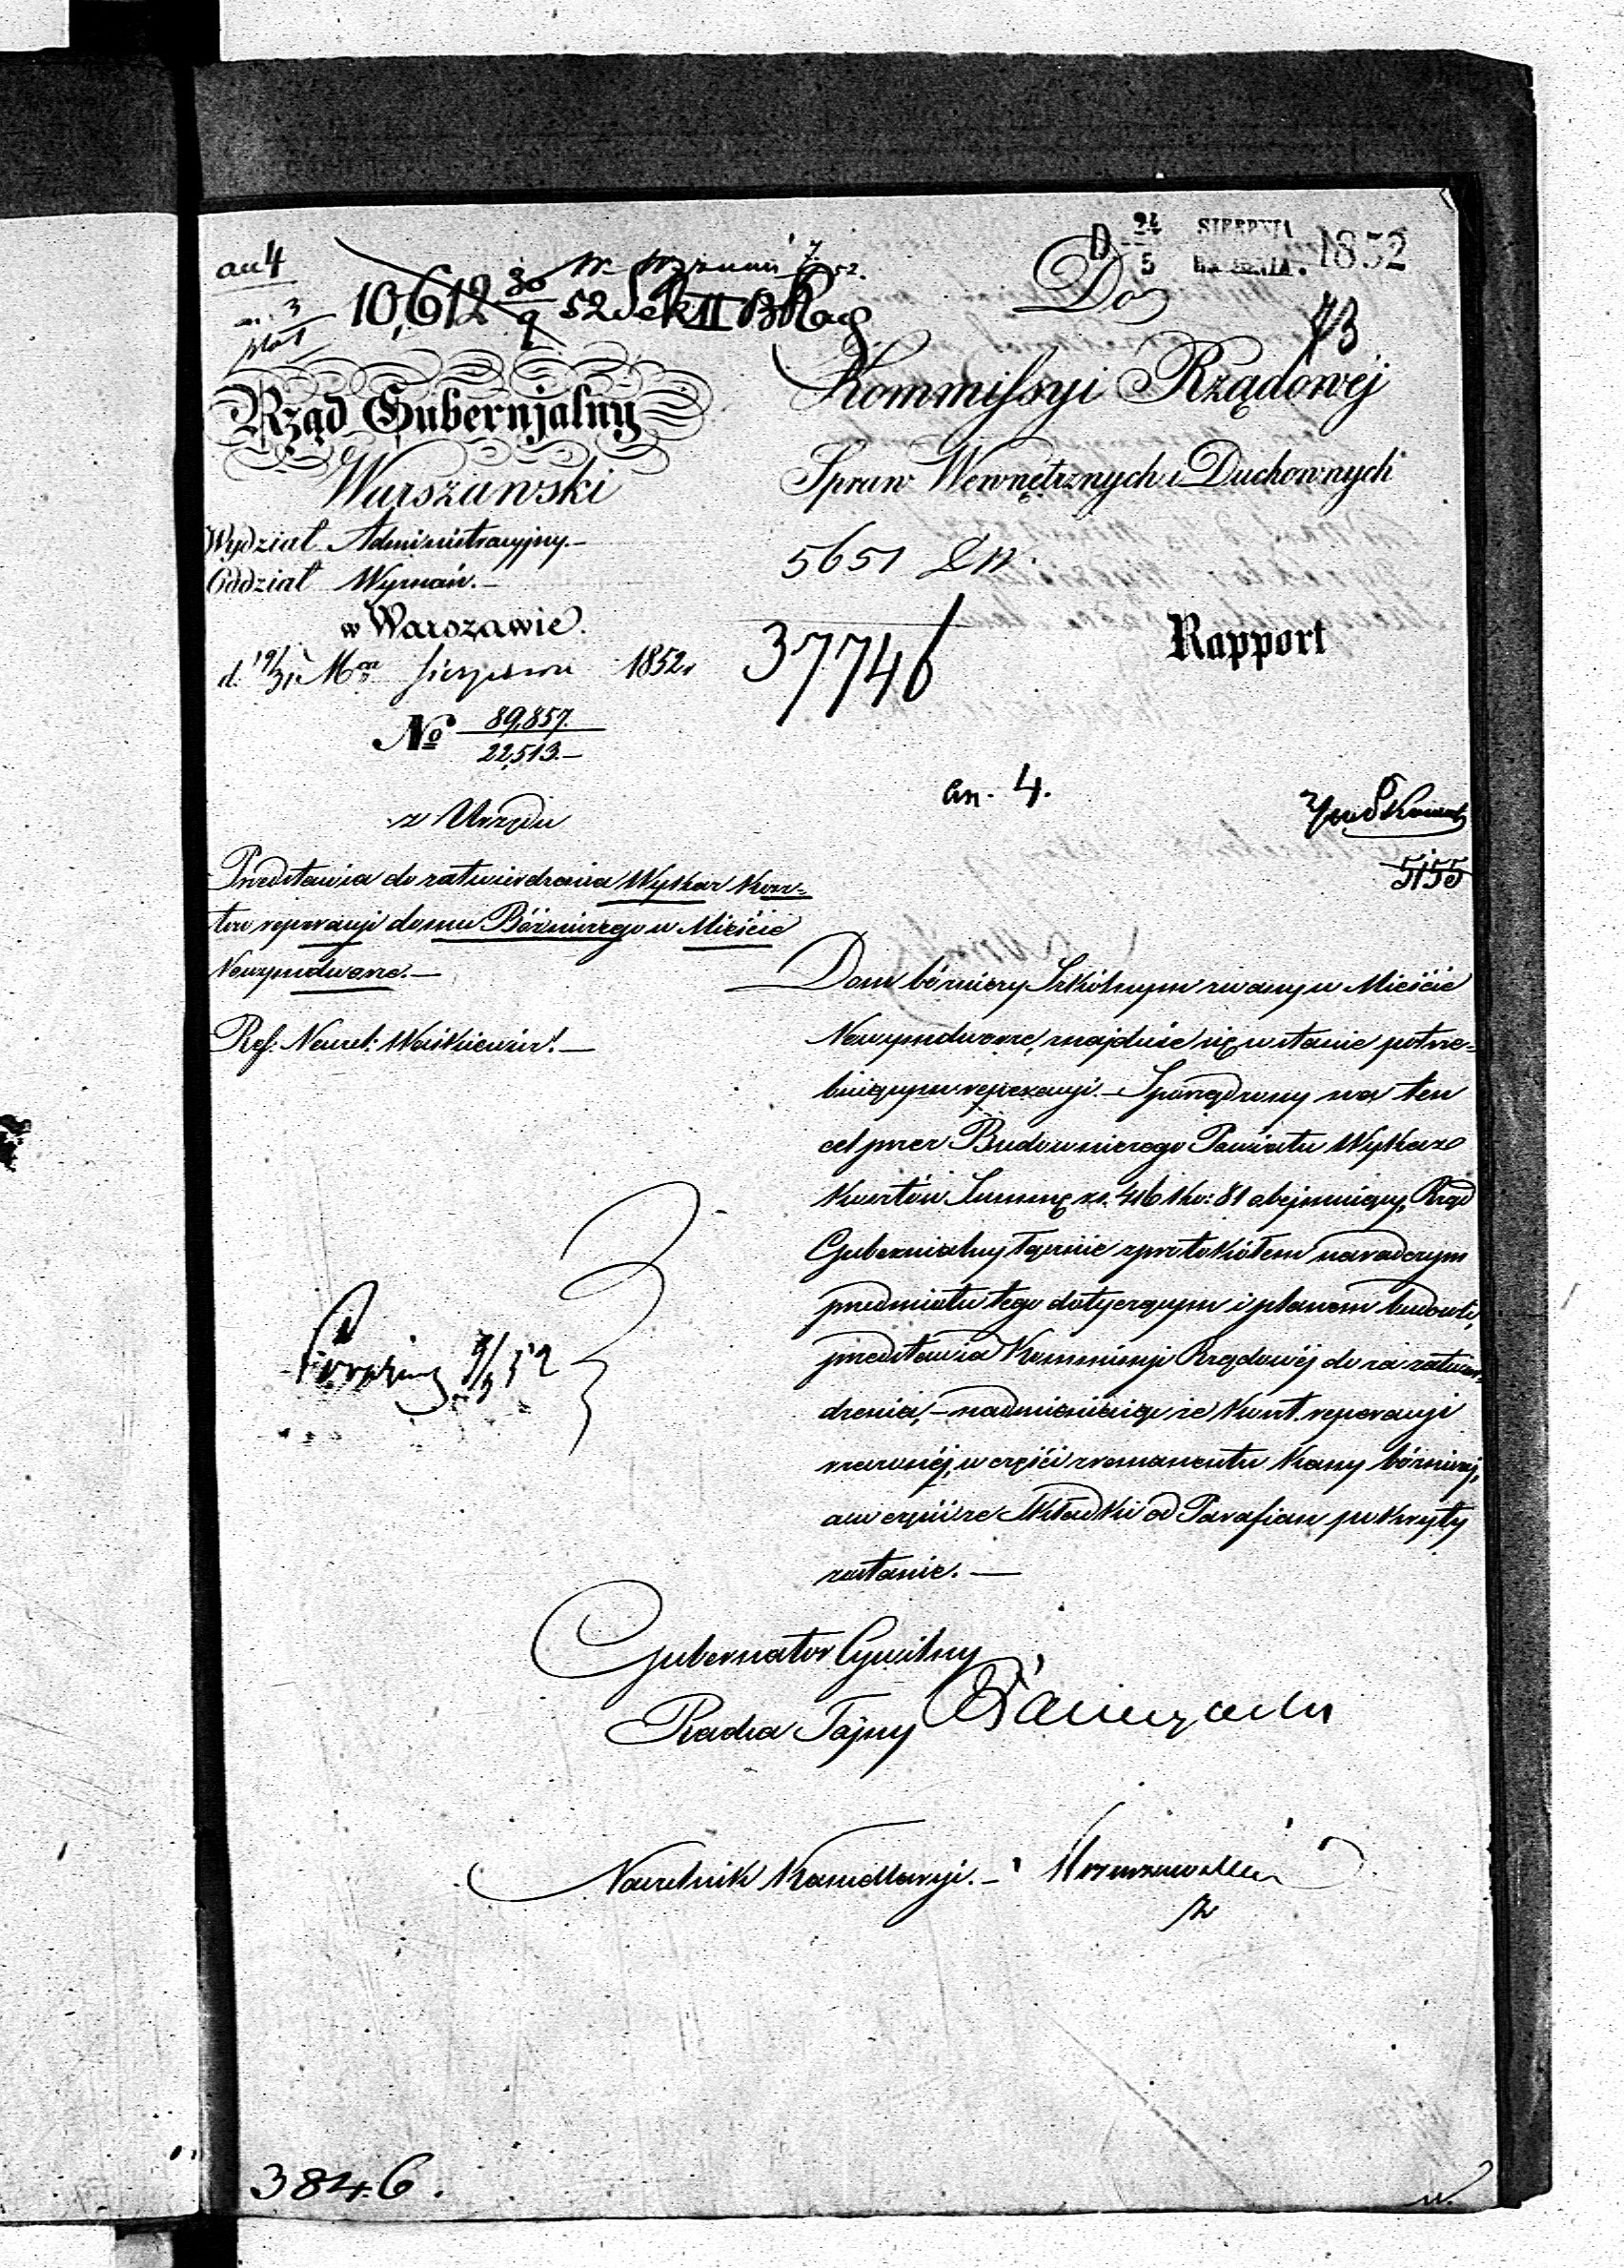 an 4
10,612 30/9 52 Sek II
D 24/5 SIERPNIA 1852
Do
73
Rząd Gubernjalny
Warszawski
Kommissyi Rządowéj
Spraw Wewnętrznych i Duchownych
Wydział Administracyjny.—
Oddział Wyznań.—
w Warszawie.
d. 19/31 Mca Sierpnia 1852 r
No 89,857./22,513.—
5651
37746
Rapport
an. 4.
z Urzędu
5155
Przedstawia do zatwierdzenia Wykaz Kosz-
tów reperacyi domu Bóżniczego w Mieście
Nowymdworze.—
Ref: Naczel: Waśkiewicz.—
Dom bóżniczy Szkólnym zwany w Mieście
Nowymdworze, znajduie się w stanie potrze-
buiącym reperacyi.— Sporządzony na ten
cel przez Budowniczego Powiatu Wykaz
Kosztów Summę rs. 416 kop: 81 obejmuiący, Rząd
Gubernialny łącznie z protokółem naradczym
przedmiotu tego dotyczącym i planem budowli,
przedstawia Kommissyi Rządowéj do zatwier-
dzenia,— nadmieniaiąc że koszt reperacyi
w części z remanentu Kassy bóżniczej,
a w części ze składki od Parafian pokryty
zostanie.—
Gubernator Cywilny
Radca Tajny
Naczelnik Kancellaryi.—
3846.